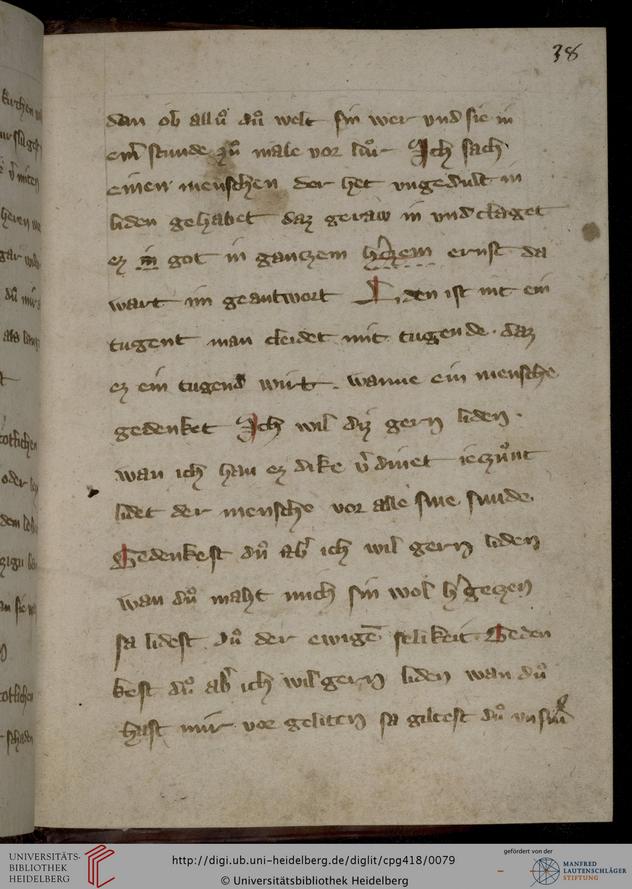 38
dan ob allů dů welt sin wer vnd sie in
eiñ stunde zů male vor lůr Ich sach
einen menschen der het vngedult in
liden gehabet daz geraw in vnd claget
ez in got in gantzem h'czem ernst da
wart im geantwort Liden ist nit ein
tugent man cleidet mit tugende daz
ez ein tugend wirt. wanne ein mensche
gedenket Ich wil diz gern liden.
wan ich han ez dike v'dinet ieczůnt
lidet der mensche vor alle sine sunde
Gedenkest dů ab' ich wil gern liden
wan dů maht mich sin wol h'geczen
sa lidest dů der ewigē selikeit Geden
kest dů ab' ich wil gern liden wan dů
hast mir vor geliten sa giltest dů
UNIVERSITÄTS-
BIBLIOTHEK
HEIDELBERG
http://digi.ub.uni-heidelberg.de/diglit/cpg418/0079
© Universitätsbibliothek Heidelberg
gefördert von der
MANFRED
LAUTENSCHLÄGER
STIFTUNG